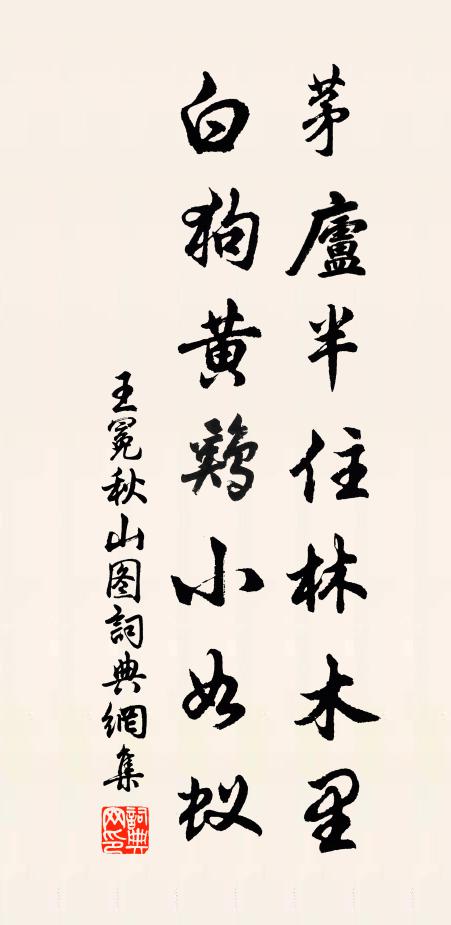 茅廬半住林木里
白狗黄鷄小如蚁
王冕秋山图詞典網集
詞典網印